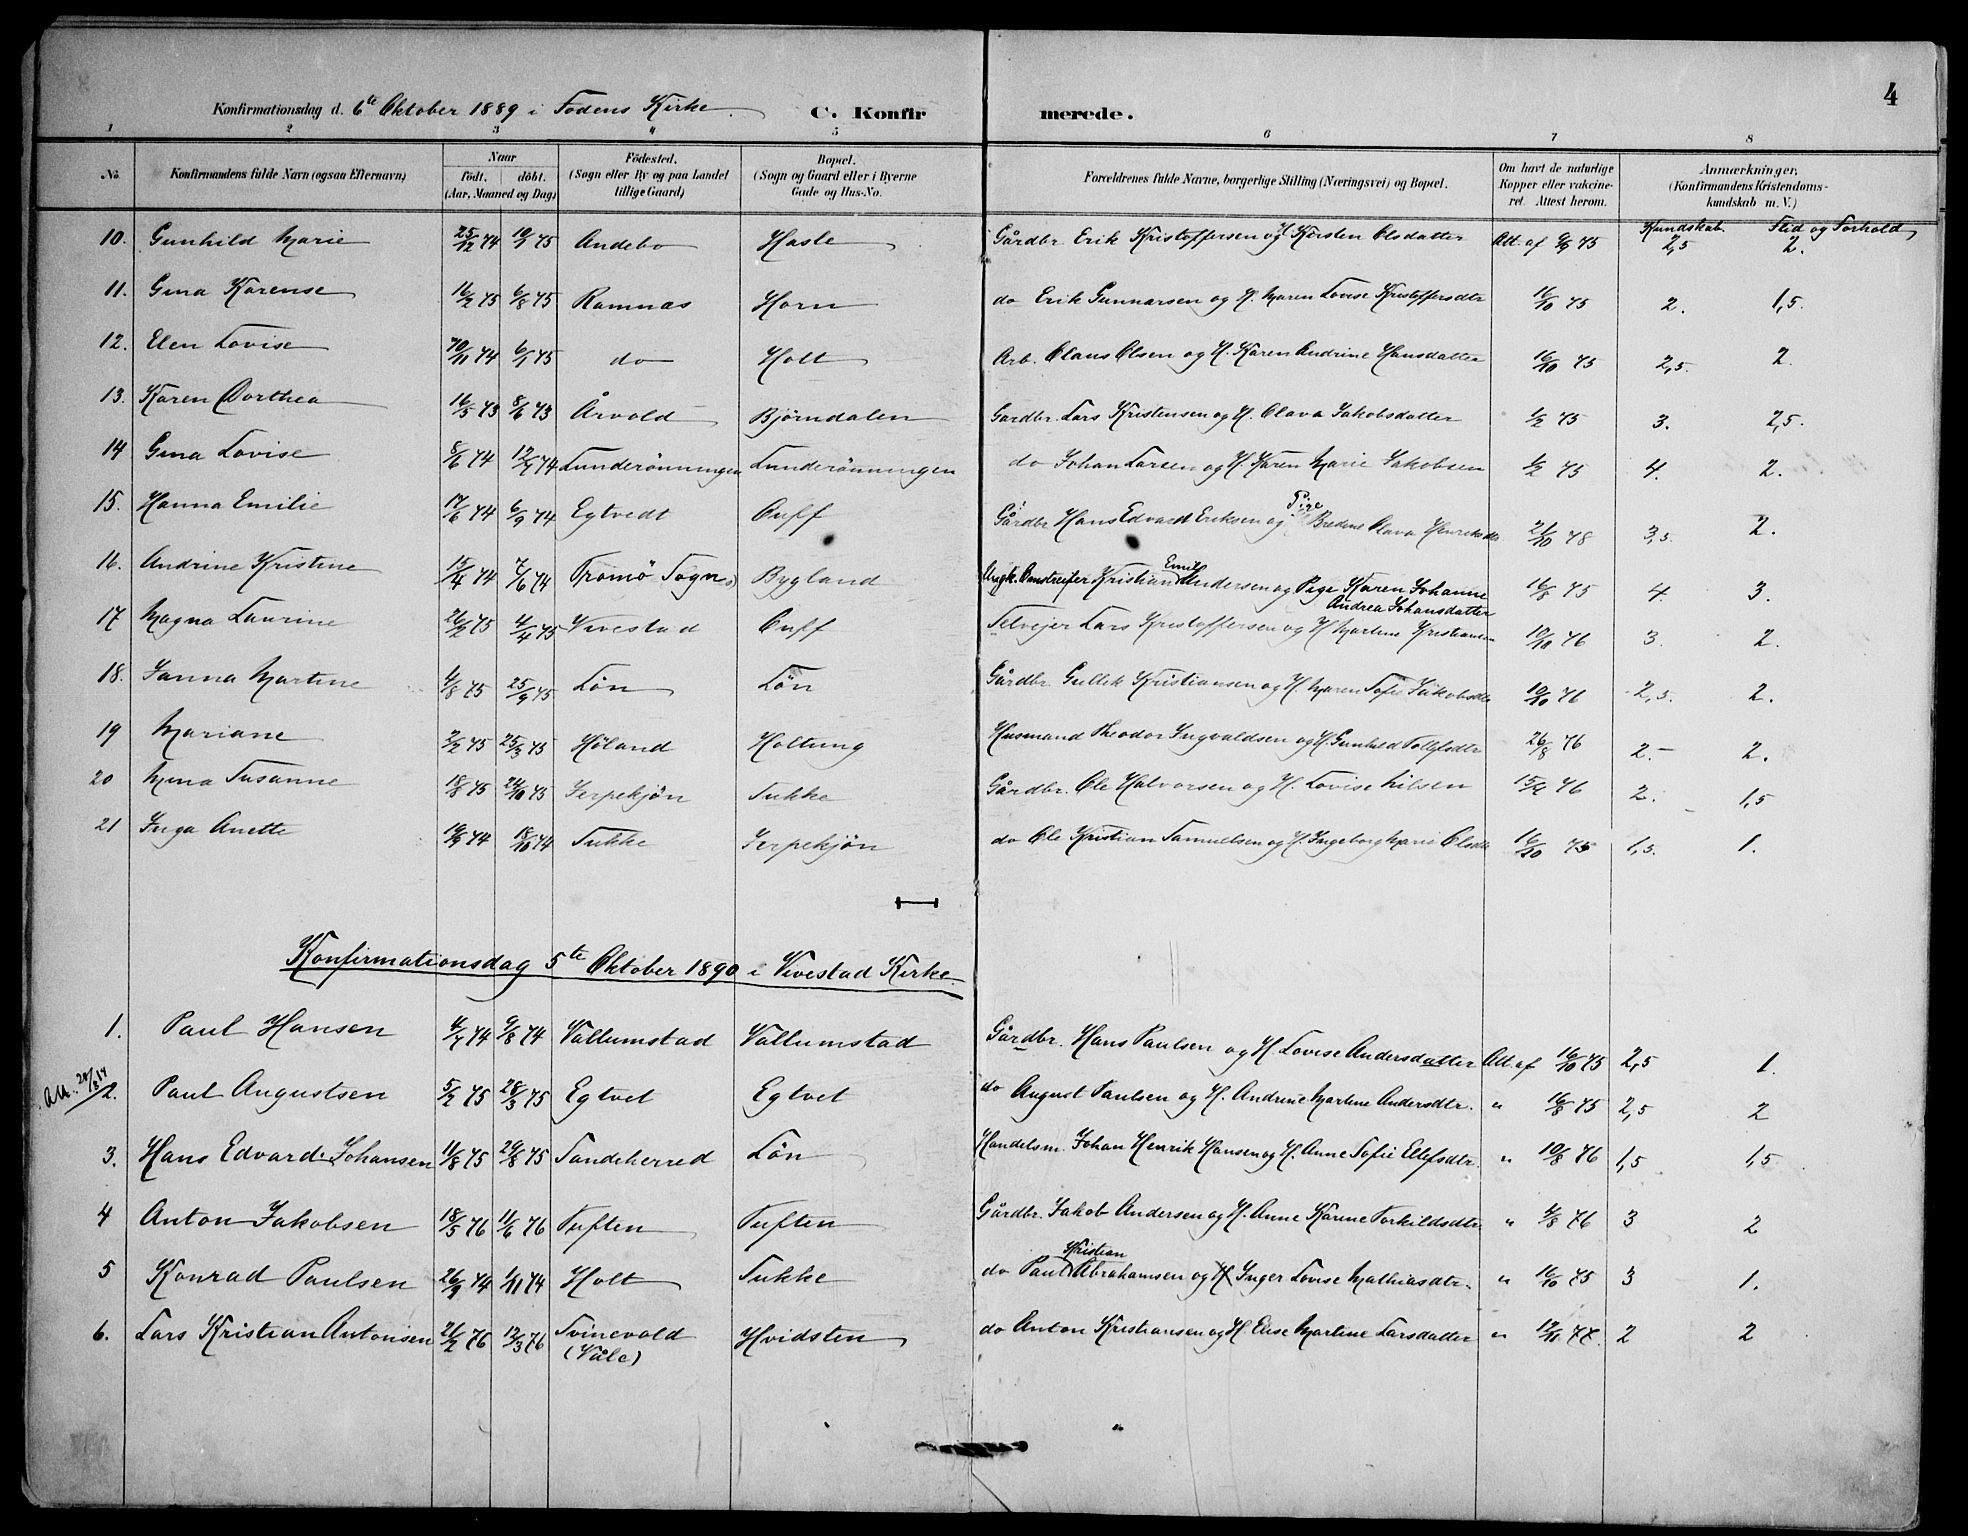 4
Konfirmationsdag d. 6te Oktober 1889 i Fodens Kirke. C. Konfirmerede.
1 2 3 4 5 6 7 8
No. Konfirmandens fulde Navn (ogsaa Efternavn) Naar födt. döbt. (Aar, Maaned og Dag) Födested. (Sogn eller By og paa Landet tillige Gaard) Bopæl. (Sogn og Gaard eller i Byerne Gade og Hus-No. Forældrenes fulde Navne, borgerlige Stilling (Næringsvei) og Bopæl. Om havt de naturlige Kopper eller vakcineret. Attest herom. Anmærkninger, (Konfirmandens Kristendomskundskab m. V.)
Kundskab Flid og Forhold
10. Gunhild Marie 25/12 74 75 Andebo Hasle Gårdbr. Erik Kristoffersen og H. Kirsten Olsdatter Att af 75 2,5 2.
11. Gina Karense 16/2 75 6/8 75 Ramnæs Horn do Erik Gunnarsen og H. Maren Lovise Kristoffersdtr 16/10 75 2. 1,5.
12. Elen Lovise 74 6/1 75 do Holt Arb. Claus Olsen og H. Karen Andrine Hansdatter 16/10 75 2,5. 2.
13. Karen Dorthea 16/5 73 8/6 73 Årvold Björndalen Gardbr. Lars Kristensen og H. Olava Jakobsdatter 1/2 75 3. 2,5.
14 Gina Lovise 8/6 74 12/7 74 Lunderönningen Lunderönningen do Johan Larsen og H. Karen Marie Jakobsen 1/2 75 4. 2.
15. Hanna Emilie 17/6 74 6/9 74 Egtvedt Gårdbr Hans Edvardt Eriksen og Pige Bredine Olava Henriksdtr 21/10 78 3,5. 2.
16. Andrine Kristine 15/4 74 7/6 74 Tromö Sogn Bygland Ungk. Kristian Emil Andersen og Pige Karen Johanne Andrea Johansdatter 16/8 75 4. 3.
17 Magna Laurine 26/2 75 4/4 75 Vivestad Selvejer Lars Kristoffersen og H Martine Kristiansen 10/10 76 3. 2.
18. Janna Martine 4/8 75 25/9 75 Lön Lön Gårdbr. Gullik Kristiansen og H. Maren Sofie Jakobsdtr 10/10 76 2,5. 2.
19 Mariane 2/2 75 25/3 75 Höland Holtung Husmand Theodor Ingvaldsen og H. Gunhild Tollefsdtr 26/8 76 2.- 2.
20 Mina Susanne 18/8 75 24/10 75 Jerpekjön Sukke Gårdbr. Ole Halvorsen og H. Lovise Nilsen 76 2. 1,5
21 Inga Anette 74 18/10 74 Sukke Jerpekjön do Ole Kristian Samuelsen og H. Ingeborg Marie Olsdtr 16/10 75 1,5. 1.
Konfirmationsdag 5te Oktober 1890 i Vivestad Kirke.
1. Paul Hansen 4/7 74 9/8 74 Vallumstad Vallumstad Gårdbr. Hans Paulsen og H Lovise Andersdatter Att af 16/10 75 2,5 1.
2. Paul Augustsen 5/2 75 28/3 75 Egtvet Egtvet do August Paulsen og H. Andrine Martine Andersdtr. " 16/8 75 2,5 2
3. Hans Edvard Johansen 11/8 75 29/8 75 Sandeherred Lön Handelsm. Johan Henrik Hansen og H. Anne Sofie Ellefsdtr. " 10/8 76 1,5 1,5
4 Anton Jakobsen 18/5 76 11/6 76 Tuften Tuften Gårdbr. Jakob Andersen og H. Anne Karine Torkildsdtr " 4/8 76 3 2
5 Konrad Paulsen 26/9 74 1/11 74 Holt Sukke do Paul Kristian Abrahamsen og H Inger Lovise Mathiasdtr. " 16/10 75 3 1.
6. Lars Kristian Antonsen 21/2 76 12/3 76 Svinevold (Våle) Hvidsten do Anton Kristiansen og H Elise Martine Larsdatter " 77. 2 2